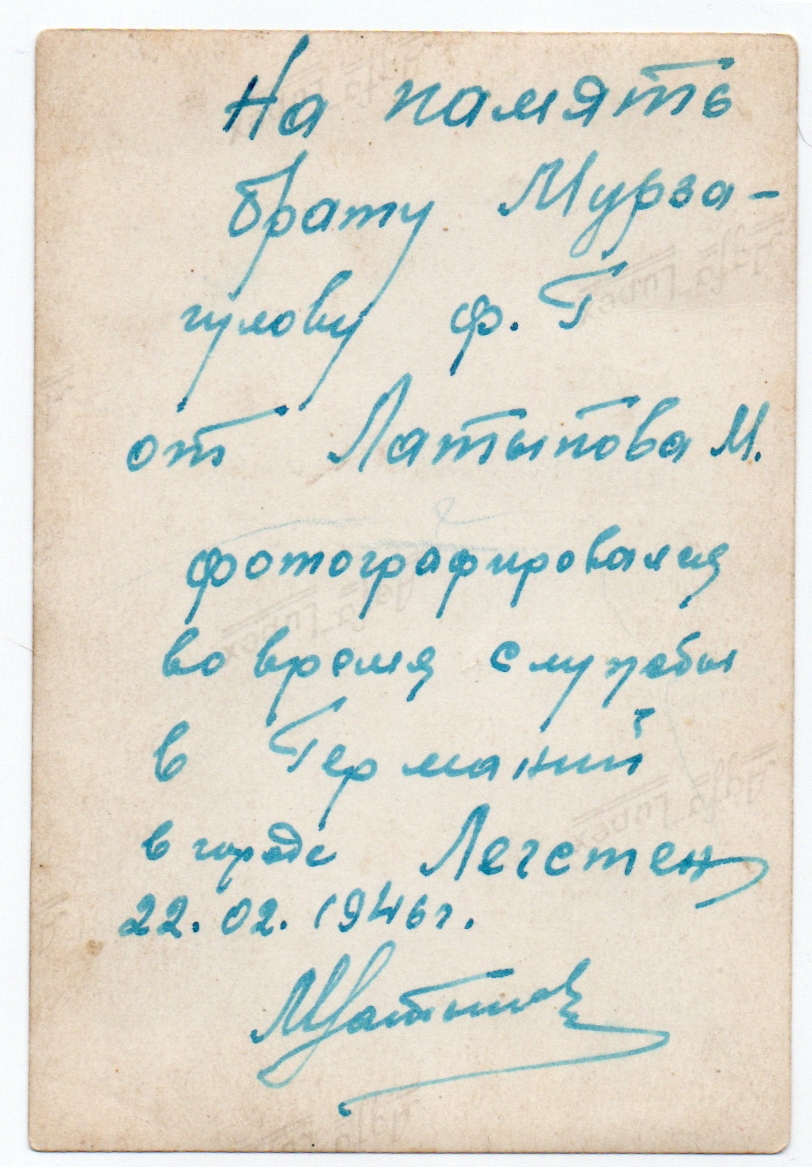 На память
брату Мурза-
гулову ф. Г
от Латыпова М.
фотографировался
во время службы
в Германий
в городе Легстен
22.02.1946г.
МЛатыпов